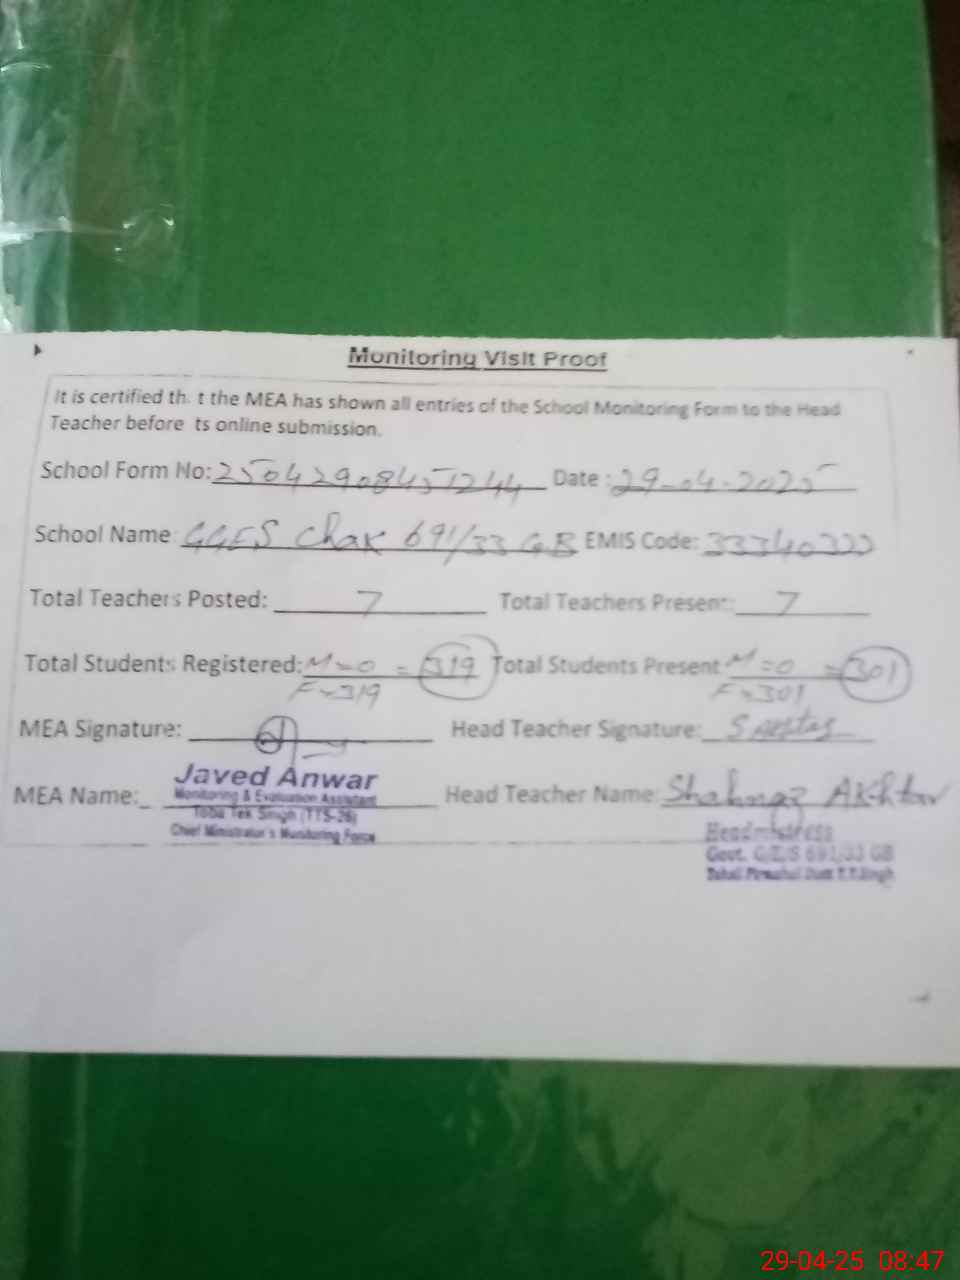 Monitoring Visit Proof
It is certified th. t the MEA has shown all entries of the School Monitoring Form to the Head
Teacher before ts online submission.
School Form No: 25042908451244 Date: 29-04-2025
School Name: GGES Chak 691/33 GB EMIS Code: 33340322
Total Teachers Posted: 7 Total Teachers Present: 7
Total Students Registered: M=0 = 319 Total Students Present M=0 = 301
F=319 F=301
MEA Signature: Head Teacher Signature:
MEA Name: Head Teacher Name: Shahnaz Akhtar
Javed Anwar
Monitoring & Evaluation Assistant
Toba Tek Singh (TTS-26)
Chief Minister's Monitoring Force
Headmistress
Govt. G/E/S 691/33 GB
29-04-25 08:47